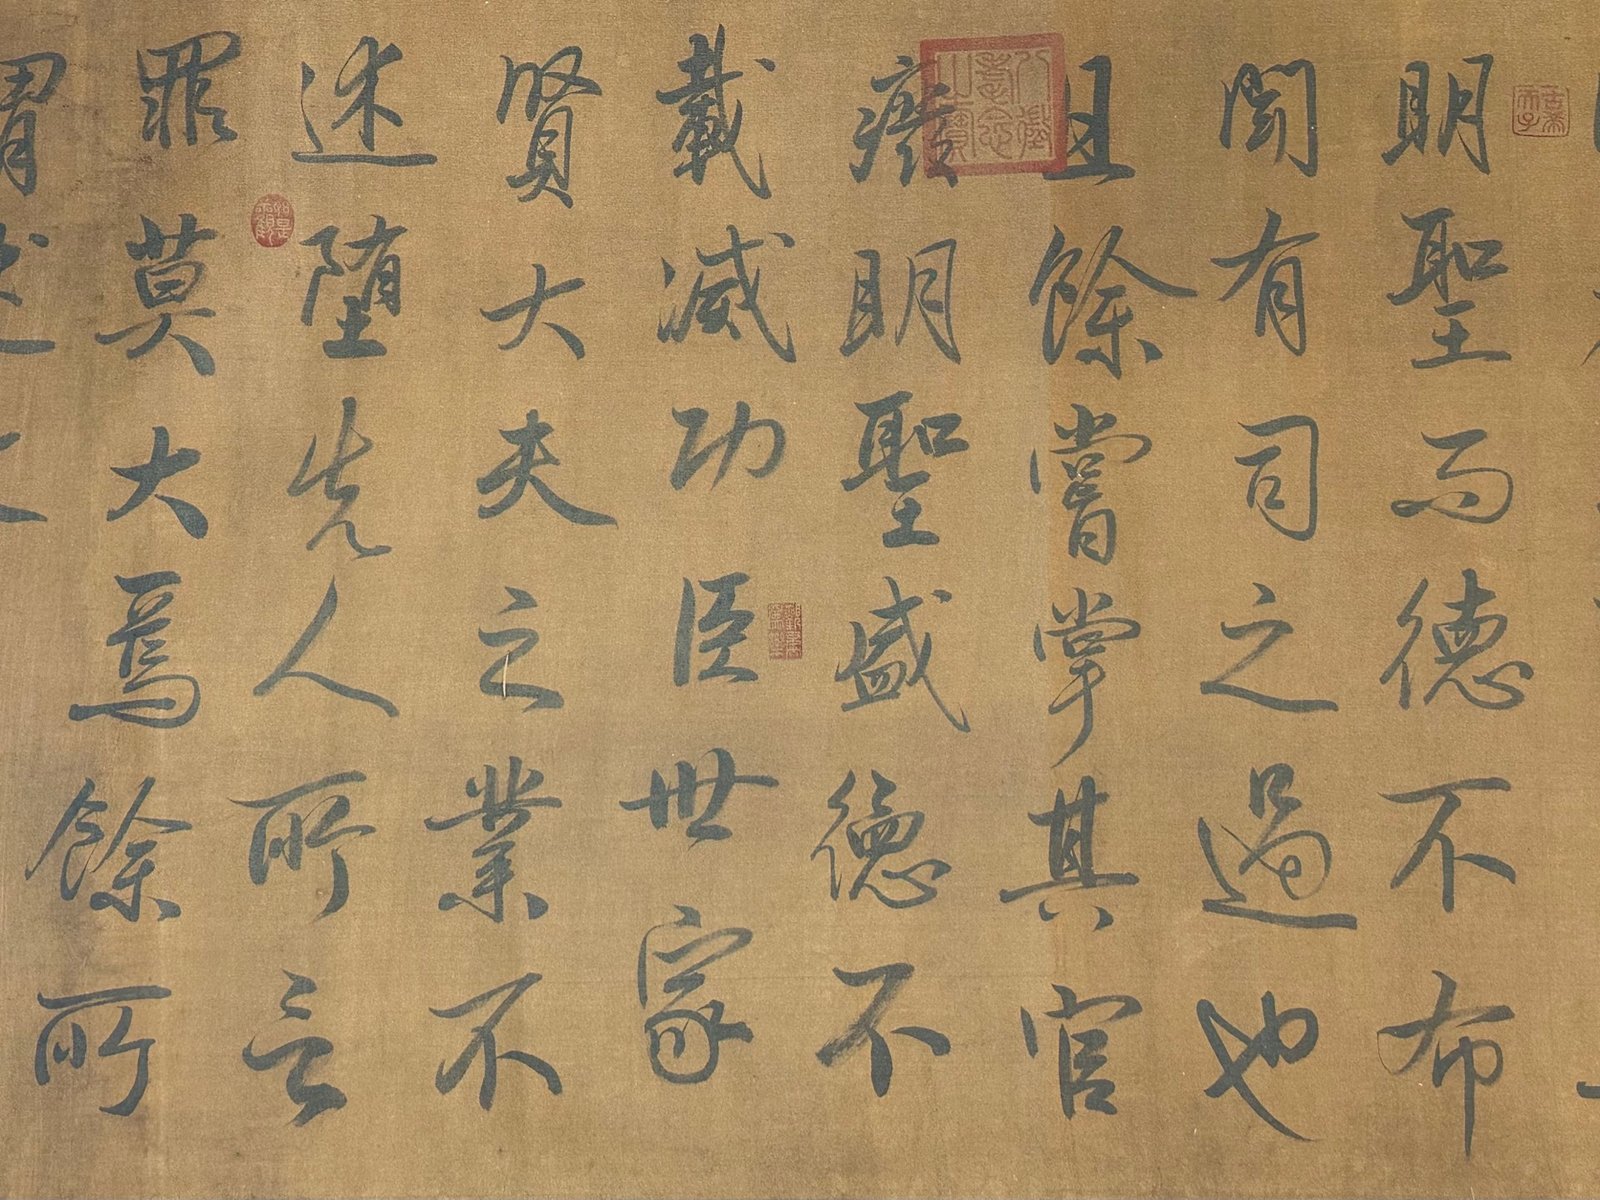 明聖而德不布
聞有司之過也
且餘嘗掌其官
癈明聖盛德不
載滅功臣世家
賢大夫之業不
述墮先人所言
罪莫大焉餘所
謂述